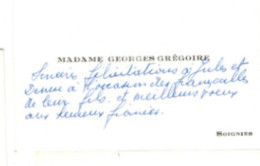 MADAME GEORGES GRÉGOIRE
Sincères félicitations à Jules et
Denise à l'occasion des fiançailles
de leur fils. et meilleurs voeux
aux heureux fiancés.
SOIGNIES